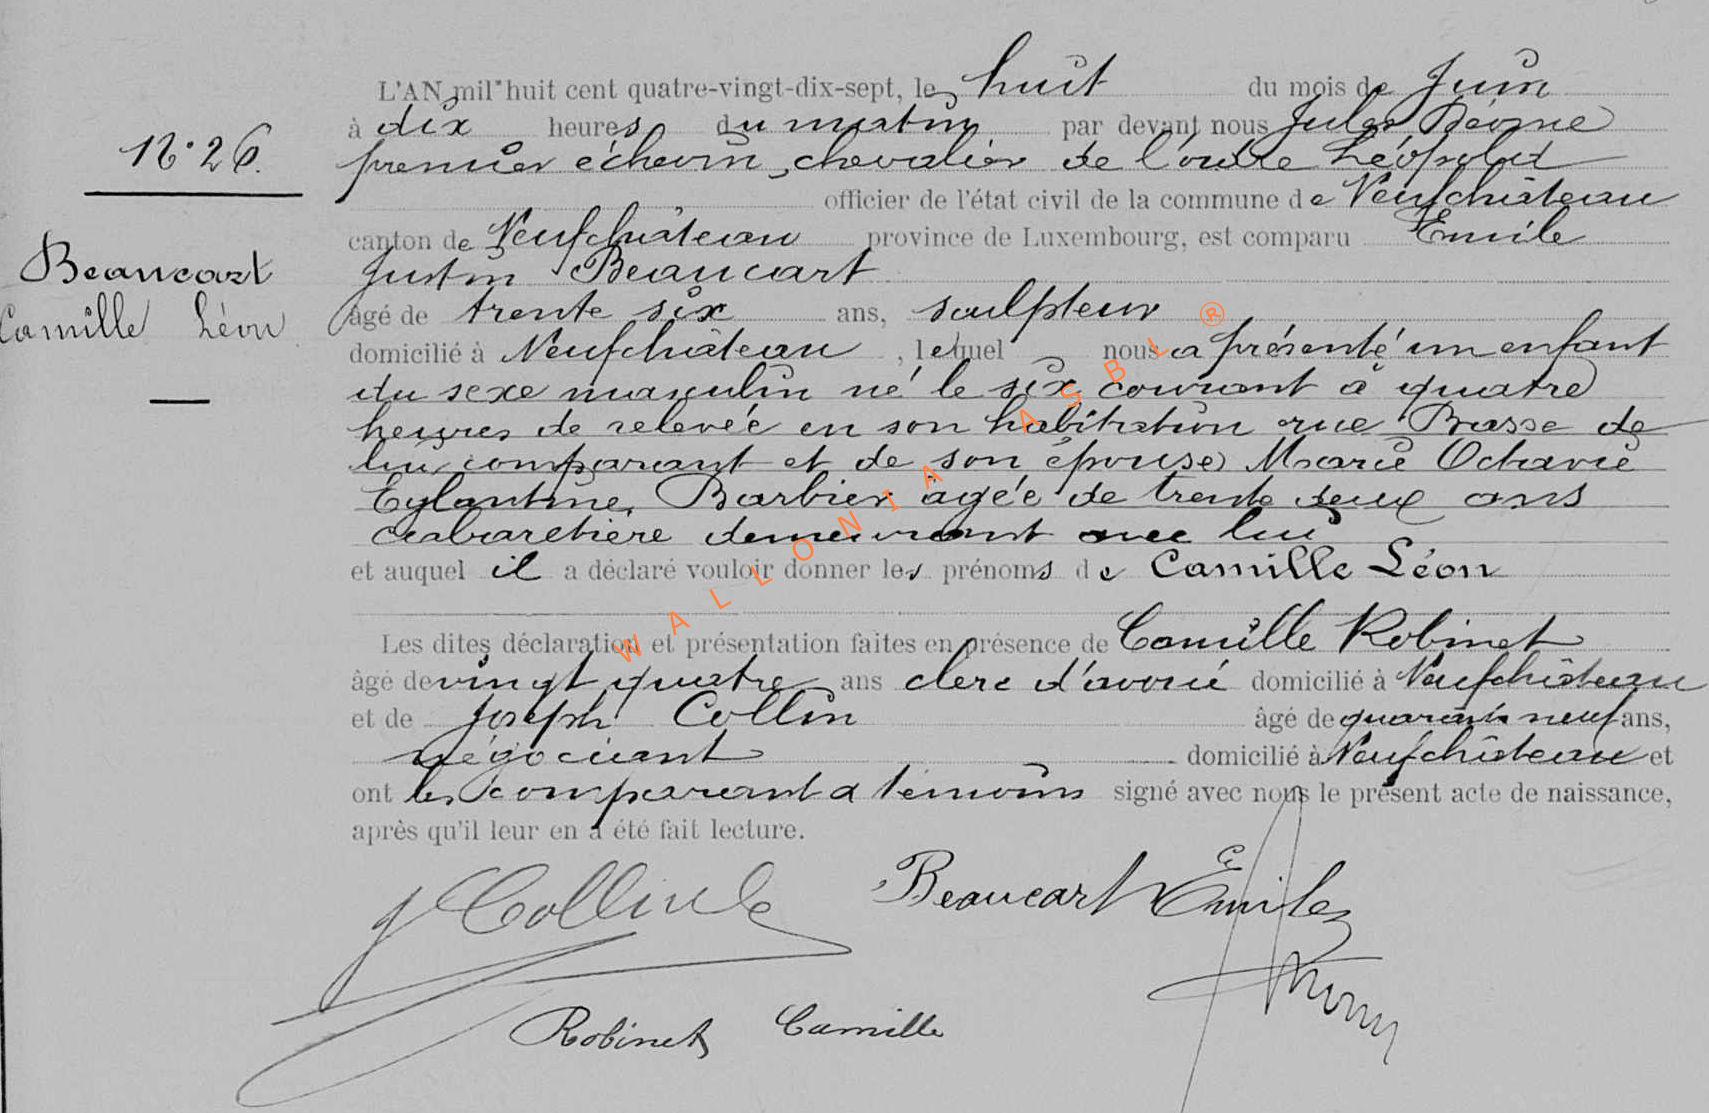 N° 26.
Beaucart
Camille Léon
L'AN mil huit cent quatre-vingt-dix-sept, le huit du mois de Juin
à dix heures du matin par devant nous Jules
premier échevin, chevalier de l'ordre Léopold
officier de l'état civil de la commune de Neufchâteau
canton de Neufchâteau province de Luxembourg, est comparu Emile
Justin Beaucart
âgé de trente six ans, sculpteur
domicilié à Neufchâteau, lequel nous a présenté un enfant
du sexe masculin né le six courant à quatre
heures de relevée en son habitation rue Basse de
lui comparant et de son épouse Marie Octavie
Eglantine Barbier âgée de trente deux ans
cabaretière demeurant avec lui
et auquel il a déclaré vouloir donner les prénoms de Camille Léon
Les dites déclaration et présentation faites en présence de Camille Robinet
âgé de vingt quatre ans clerc d'avoué domicilié à Neufchâteau
et de Joseph Collin âgé de quarante neuf ans,
négociant domicilié à Neufchâteau et
ont les comparant & témoins signé avec nous le présent acte de naissance,
après qu'il leur en a été fait lecture.
J Collin
Beaucart Emile
Robinet Camille
WALLONIA ASBL ®